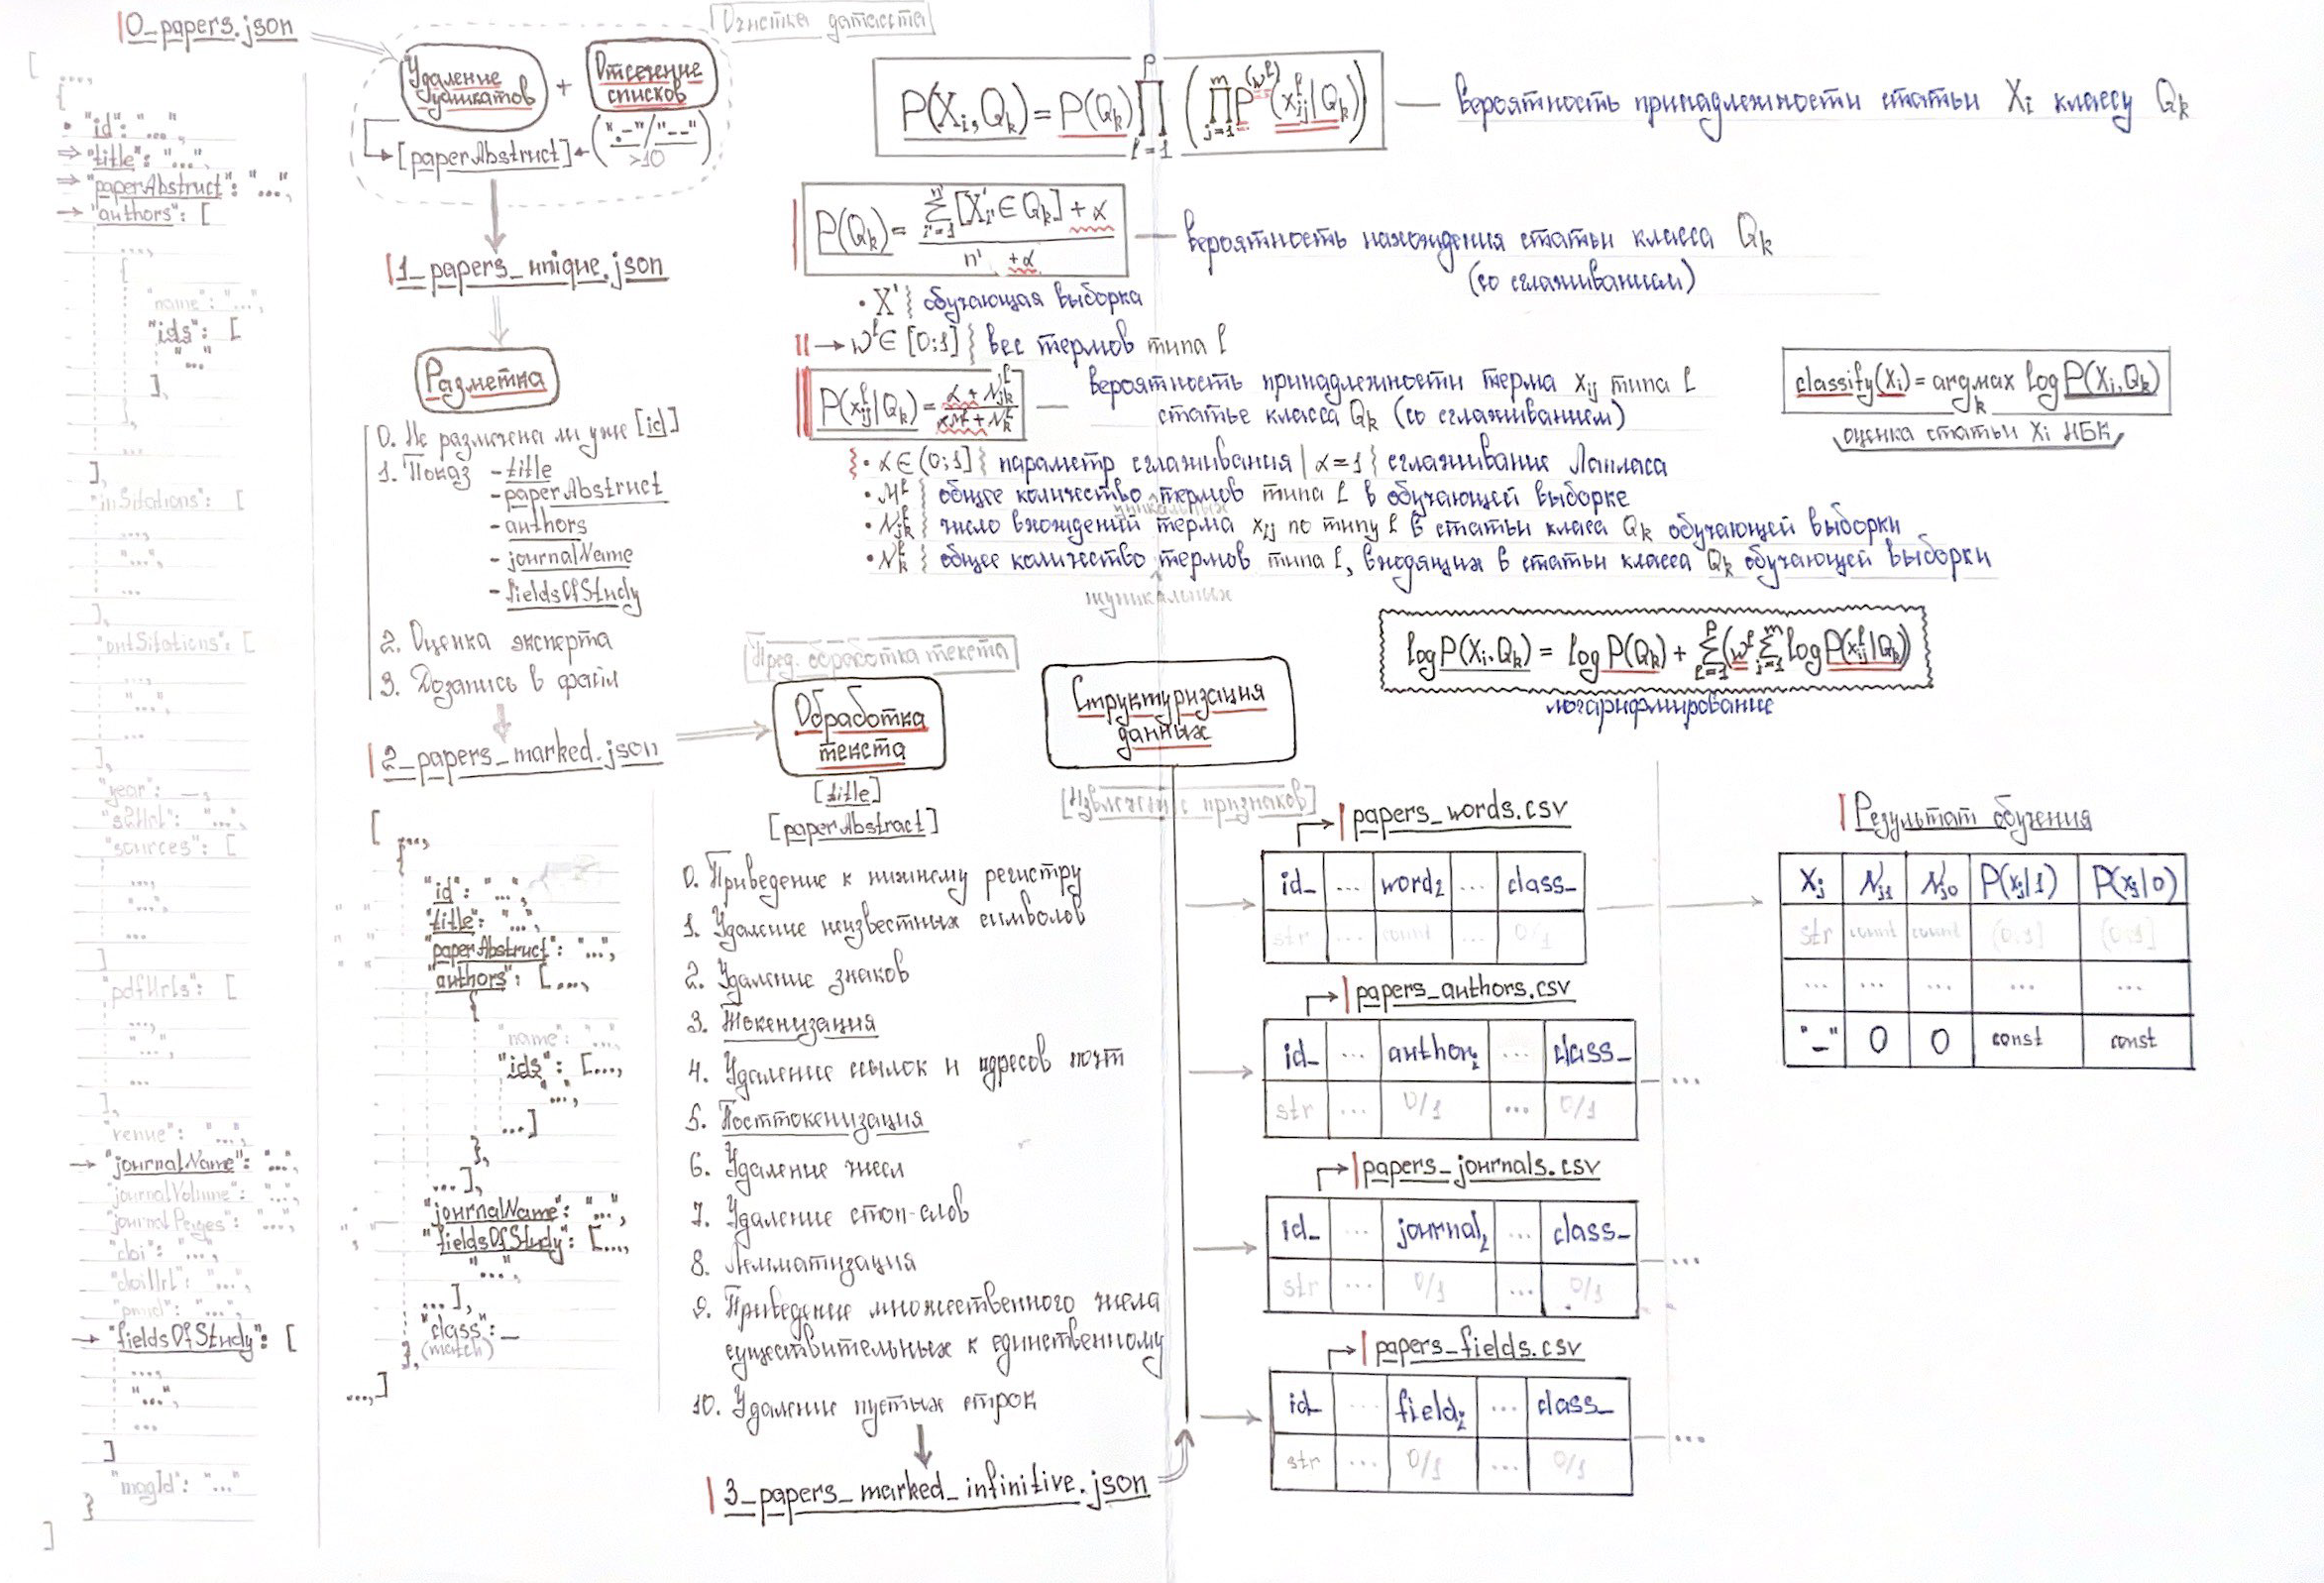 0_papers.json
[
...,
{
"id": "...",
"title": "...",
"paperAbstruct": "...",
"authors": [
...,
{
"name": "...",
"ids": [
"..."
],
},
...
],
"inSitations": [
...,
"...",
...
],
"outSitations": [
...,
"..."
...,
...
],
"year": _,
"s2Url": "...",
"sources": [
...,
"...",
...
]
"pdfUrls": [
...,
"...",
...
],
"venue": "...",
"journalName": "...",
"journalVolume": "...",
"journalPages": "...",
"doi": "...",
"doiUrl": "...",
"pmid": "...",
"fieldsOfStudy": [
...,
"...",
...
]
"magId": "..."
}
]
Очистка датасета
Удаление дубликатов + Отсечение списков
[paperAbstruct] ← (".-"/"--") >10
1_papers_unique.json
Разметка
0. Не размечена ли уже [id]
1. Показ - title
- paperAbstract
- authors
- journalName
- fieldsOfStudy
2. Оценка эксперта
3. Дозапись в файл
2_papers_marked.json
[ ...,
{
"id": "...",
"title": "...",
"paperAbstract": "...",
"authors": [...,
{
"name": "...",
"ids": [...,
"...",
...]
},
...],
"journalName": "...",
"fieldsOfStudy": [...,
"...",
...],
"class": _
(match)
},
...,]
Пред. обработка текста
Обработка
текста
[title]
[paperAbstract]
0. Приведение к нижнему регистру
1. Удаление неизвестных символов
2. Удаление знаков
3. Токенизация
4. Удаление ссылок и адресов почт
5. Посттокенизация
6. Удаление чисел
7. Удаление стоп-слов
8. Лемматизация
9. Приведение множественного числа
существительных к единственному
10. Удаление пустых строк
3_papers_marked_infinitive.json
P(Xᵢ,Qₖ) = P(Qₖ) ∏ₗ₌₁ᵖ (∏ⱼ₌₁ᵐ P^(wˡ)(xˡᵢⱼ|Qₖ)) — вероятность принадлежности статьи Xᵢ классу Qₖ
P(Qₖ) = (∑ᵢ'₌₁ⁿ' [X'ᵢ' ∈ Qₖ] + α) / (n' + α) — вероятность нахождения статьи класса Qₖ
(со сглаживанием)
• X' } обучающая выборка
→ wˡ ∈ [0;1] } вес термов типа l
P(xˡᵢⱼ|Qₖ) = (α + Nˡⱼₖ) / (αMˡ + Nˡₖ) — вероятность принадлежности терма xᵢⱼ типа l
статье класса Qₖ (со сглаживанием)
• α ∈ (0;1] } параметр сглаживания | α=1 } сглаживание Лапласа
• Mˡ } общее количество термов типа l в обучающей выборке
уникальных
• Nˡⱼₖ } число вхождений терма xᵢⱼ по типу l в статьи класа Qₖ обучающей выборки
• Nˡₖ } общее количество термов типа l, входящих в статьи класса Qₖ обучающей выборки
уникальных
classify(Xᵢ) = argmaxₖ log P(Xᵢ,Qₖ)
оценка статьи Xᵢ НБК
log P(Xᵢ,Qₖ) = log P(Qₖ) + ∑ₗ₌₁ᵖ (wˡ ∑ⱼ₌₁ᵐ log P(xˡᵢⱼ|Qₖ))
логарифмирование
Структуризация
данных
[Извлечение признаков]
papers_words.csv
id_ ... word₂ ... class_
str ... count ... 0/1
papers_authors.csv
id_ ... author₂ ... class_
str ... 0/1 ... 0/1
papers_journals.csv
id_ ... journal₂ ... class_
str ... 0/1 ... 0/1
papers_fields.csv
id_ ... field₂ ... class_
str ... 0/1 ... 0/1
Результат обучения
Xⱼ Nⱼ₁ Nⱼ₀ P(xⱼ|1) P(xⱼ|0)
str count count (0;1] (0;1]
... ... ... ... ...
"_" 0 0 const const